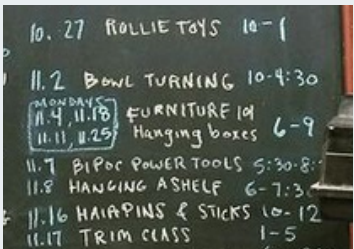 10.27 ROLLIE TOYS 10-1
11.2 BOWL TURNING 10-4:30
MONDAYS
11.4, 11.18
11.11, 11.25
FURNITURE 101
Hanging boxes 6-9
11.7 BIPOC POWER TOOLS 5:30-8:
11.8 HANGING A SHELF 6-7:30
11.16 HAIRPINS & STICKS 10-12
11.17 TRIM CLASS 1-5